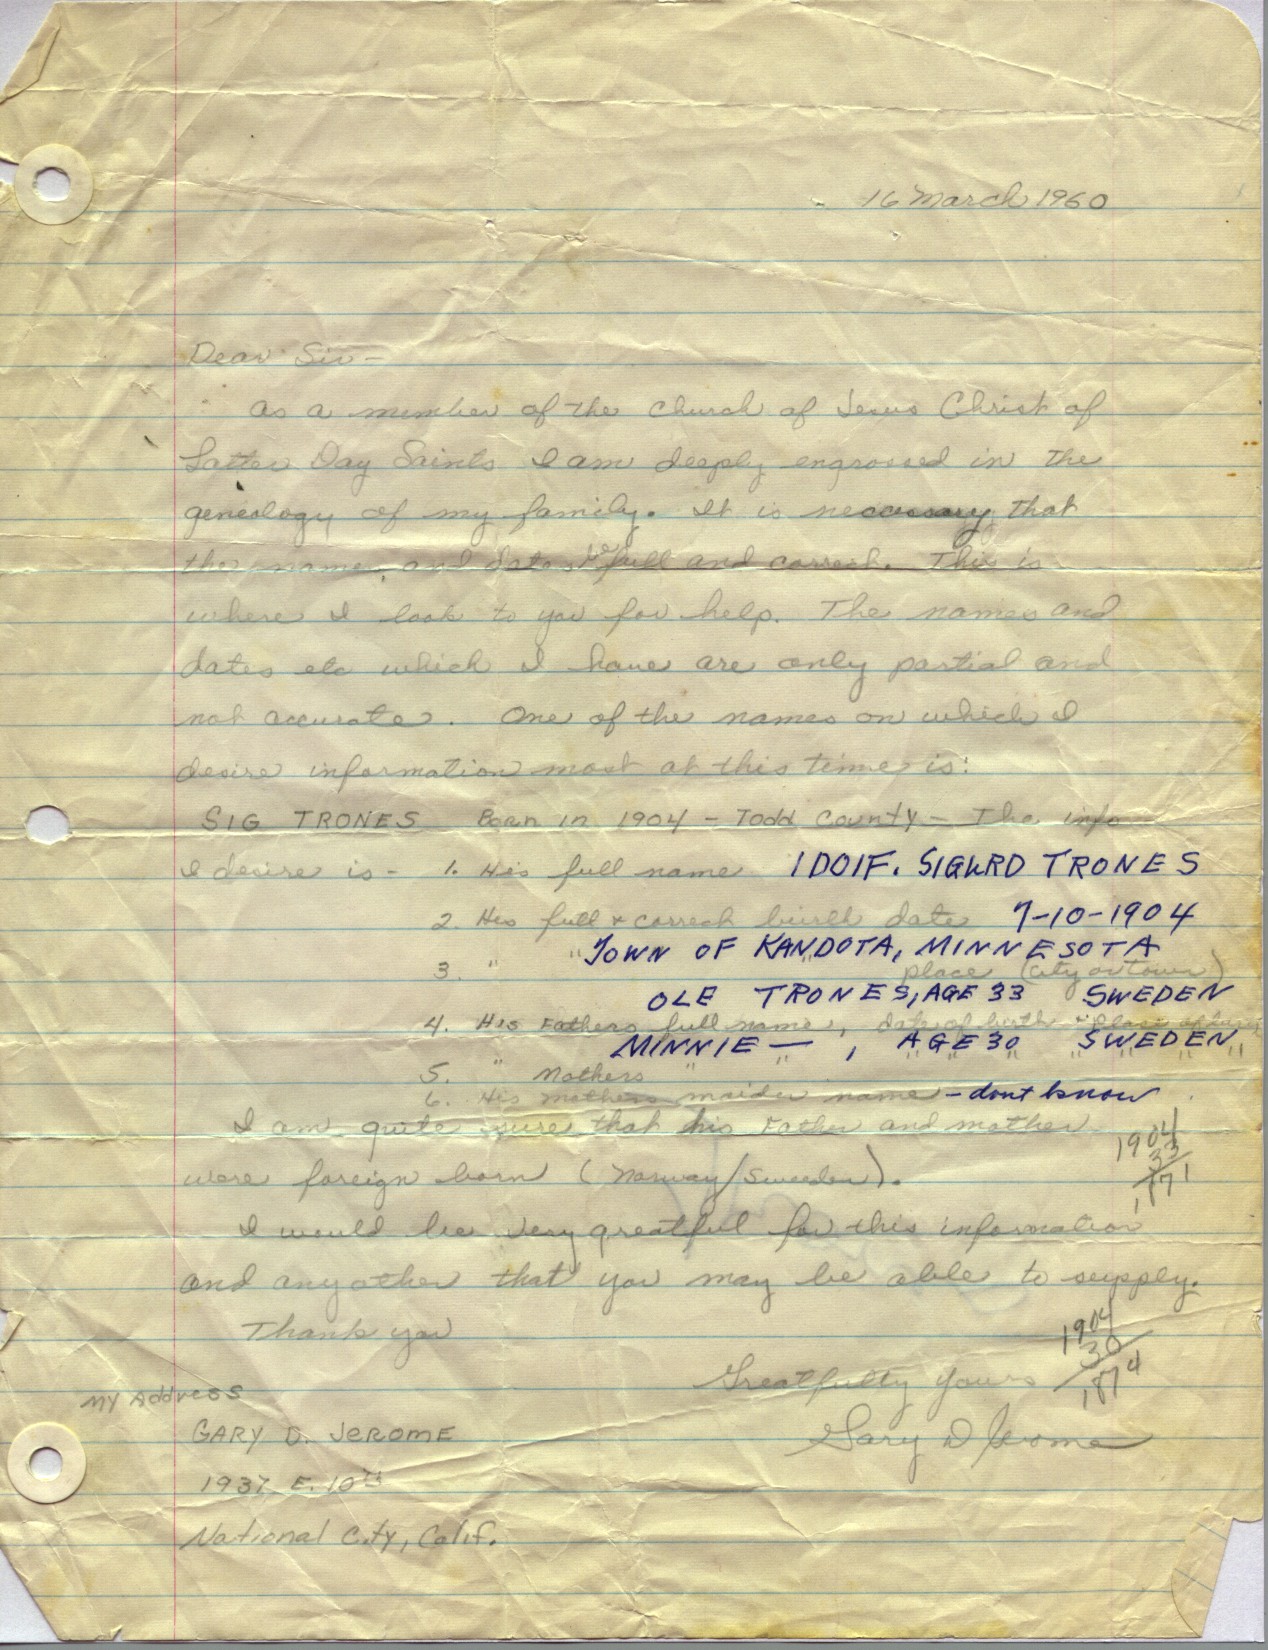 16 March 1960
Dear Sir -
As a member of the Church of Jesus Christ of
Latter Day Saints I am deeply engrossed in the
geneology of my family. It is neccessary that
the names and dates be full and correct. This is
where I look to you for help. The names and
dates etc which I have are only partial and
not accurate. One of the names on which I
desire information most at this time is:
SIG TRONES Born in 1904 - Todd County - The info
I desire is - 1. His full name IDOIF. SIGURD TRONES
2 His full & correct birth date 7-10-1904
TOWN OF KANDOTA, MINNESOTA
3. " " " place (city or town)
OLE TRONES, AGE 33 SWEDEN
4. His Fathers full name, date of birth & place of
MINNIE — , AGE 30 SWEDEN
5. " Mothers " " " " " " " "
6. His mothers maiden name - dont know
I am quite sure that his Father and mother
1904
33
1871
were foreign born (Norway/Sweden).
I would be very greatful for this information
and any other that you may be able to supply.
Thank you
1904
30
1874
Greatfully yours
Gary D Jerome
My Address
GARY D. JEROME
1937 E. 10th
National City, Calif.